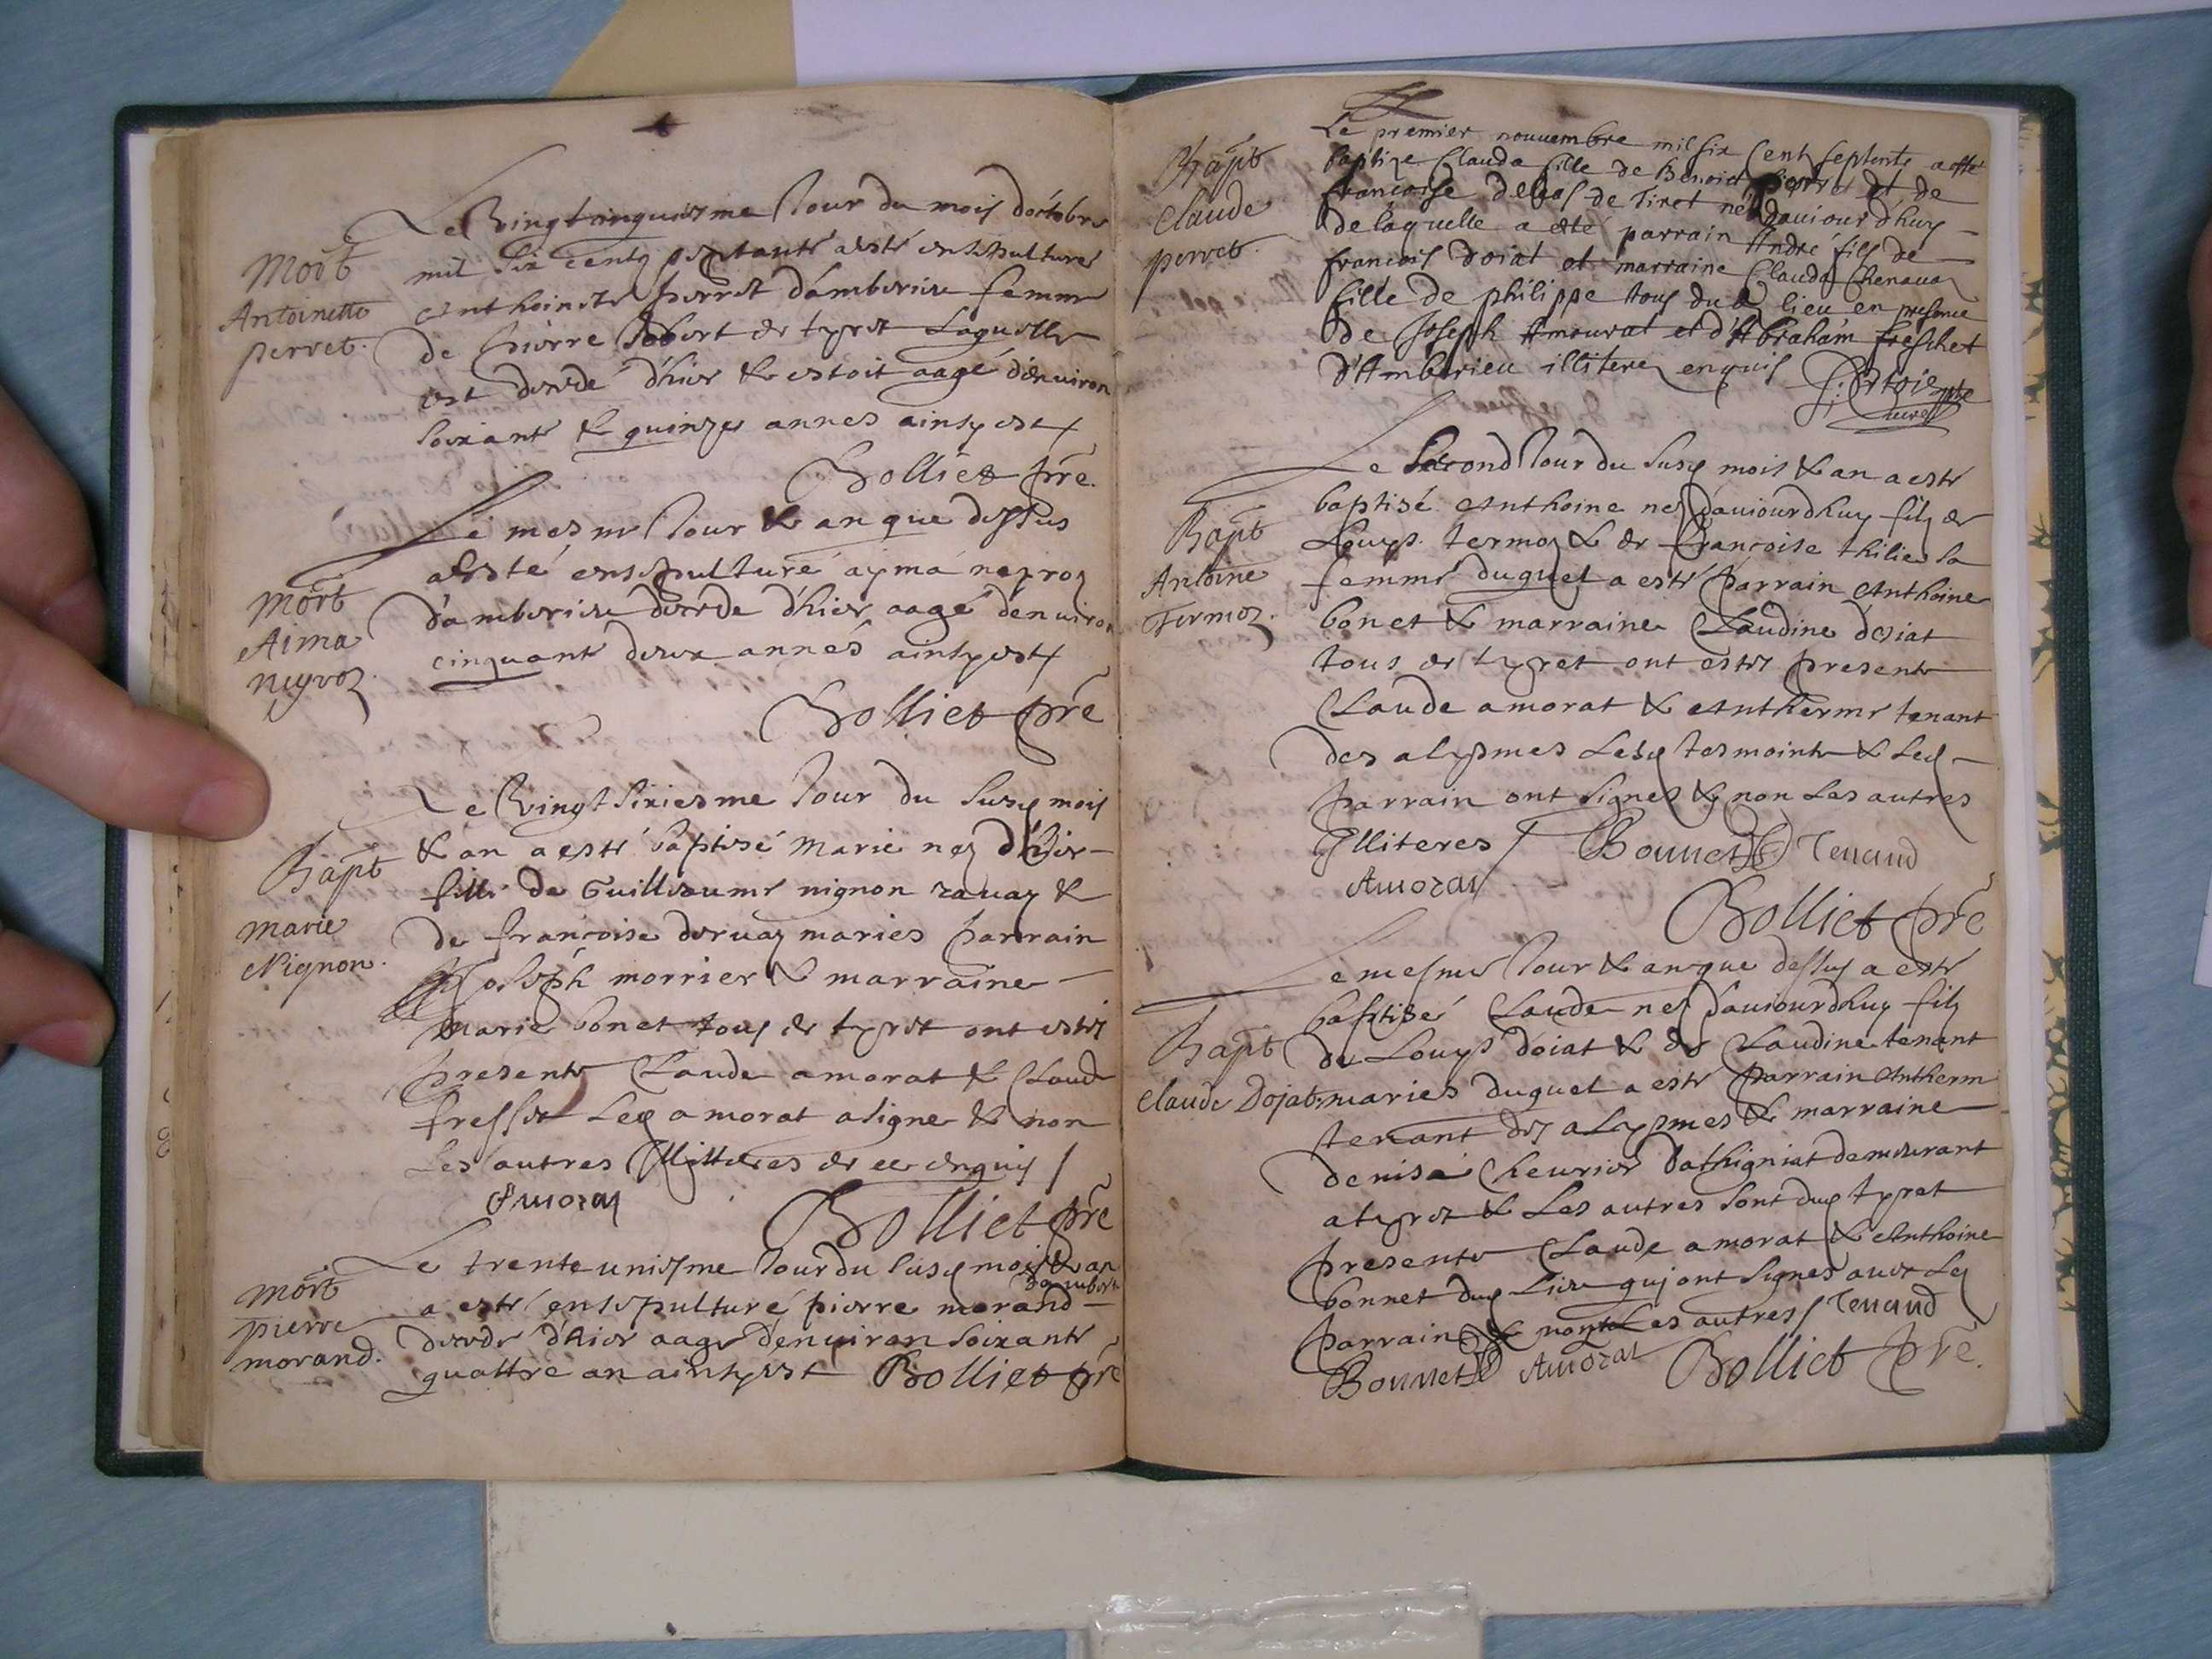 Mort
Antoinette
perret.
Le Vingtcinquiesme Jour du mois doctobre
mil six centz septante a esté ensepulturé
anthoinete perret d'amberieu femme
de pierre Robert de tyret Laquelle
est decedé d'hier & estoit aagé d'enuiron
soixante & quinze annes ainsy est
Bolliet pre.
Mort
Aima
neyroz.
Le mesme Jour & an que dessus
a esté ensepulturé ayma neyroz
d'amberieu decede d'hier aagé d'enuiron
cinquante deux annés ainsy est
Bolliet pre
Bapt
marie
Nignon.
Le Vingt sixiesme Jour du susd mois
& an a esté baptisé marie nez d'hier
fille de Guilleaume nignon rauaz &
de francoise deruaz mariés parrain
Joseph morrier & marraine
marie bonet tous de tyret ont estés
presents Claude amorat & Claude
fresset Led amorat a signe & non
Les autres Illiteres de ce enquis
Amorat
Bolliet pre
mort
pierre
morand.
Le trente uniesme Jour du susd mois & an
a esté ensepulturé pierre morand
d'amberieu
decede d'hier aage d'enuiron soixante
quattre an ainsy est Bolliet pre
Bapt
Claude
perret.
Le premier nouuembre mil six cent septente a esté
baptize Clauda fille de Benoict perret et de
francoise de tiret née d'auiourd'huy
de laquelle a esté parrain André fils de
francois doiat et marraine Clauda Chenauaz
fille de philippe tous dud lieu en presence
de Joseph Amourat et d'Abraham freschet
d'Amberieu illiterez enquis
curé
Bapt
Antoine
Termoz.
Le second Jour du susd mois & an a esté
baptisé anthoine nez d'auiourdhuy filz de
Louys termoz & de francoise thilie sa
femme duquel a esté parrain anthoine
bonet & marraine Claudine doiat
tous de tyret ont estés presents
Claude amorat & antherme tenant
des alysmes Lesd tesmoints & Led
parrain ont signes & non Les autres
Illiteres Bonnet Tenand
Amorat
Bolliet pre
Bapt
Claude Dojat.
Le mesme Jour & an que dessus a esté
baptisé Claude nez d'auiourdhuy filz
de Louys doiat & de Claudine tenant
mariés duquel a esté parrain antherme
tenant des alysmes & marraine
denisa Cheurier demeurant
a tyret & Les autres sont dud tyret
presents Claude amorat & anthoine
bonnet dud Lieu qui ont signés auec Led
parrain & non Les autres Tenand
Bonnet Amorat Bolliet pre.